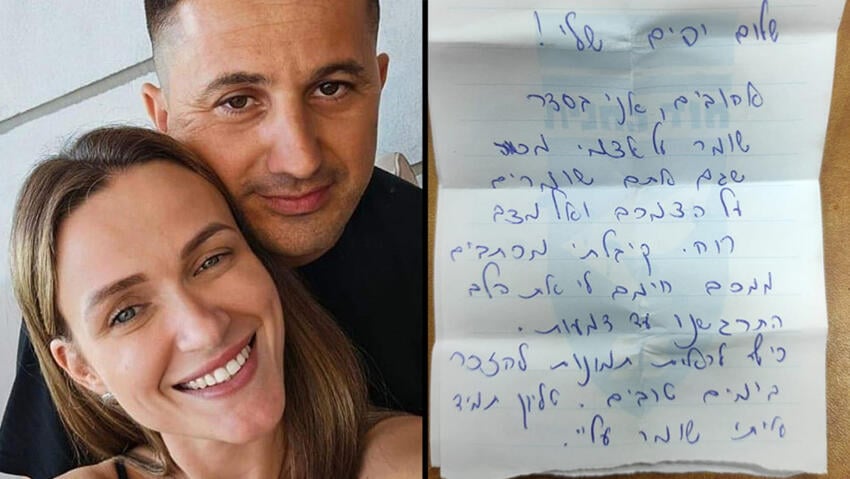 שלום יפים שלי!
אהובים, אני בסדר
שומר על עצמי מכם
שגם אתם שומרים
על הצמכם ועל מצב
רוח. קיבלתי מכתבים
ממכם חימם לי את הלב
התרגשנו עד דמעות.
כיף לראות תמונות להזכר
בימים טובים. טליון תמיד
איתי שומר עליי.